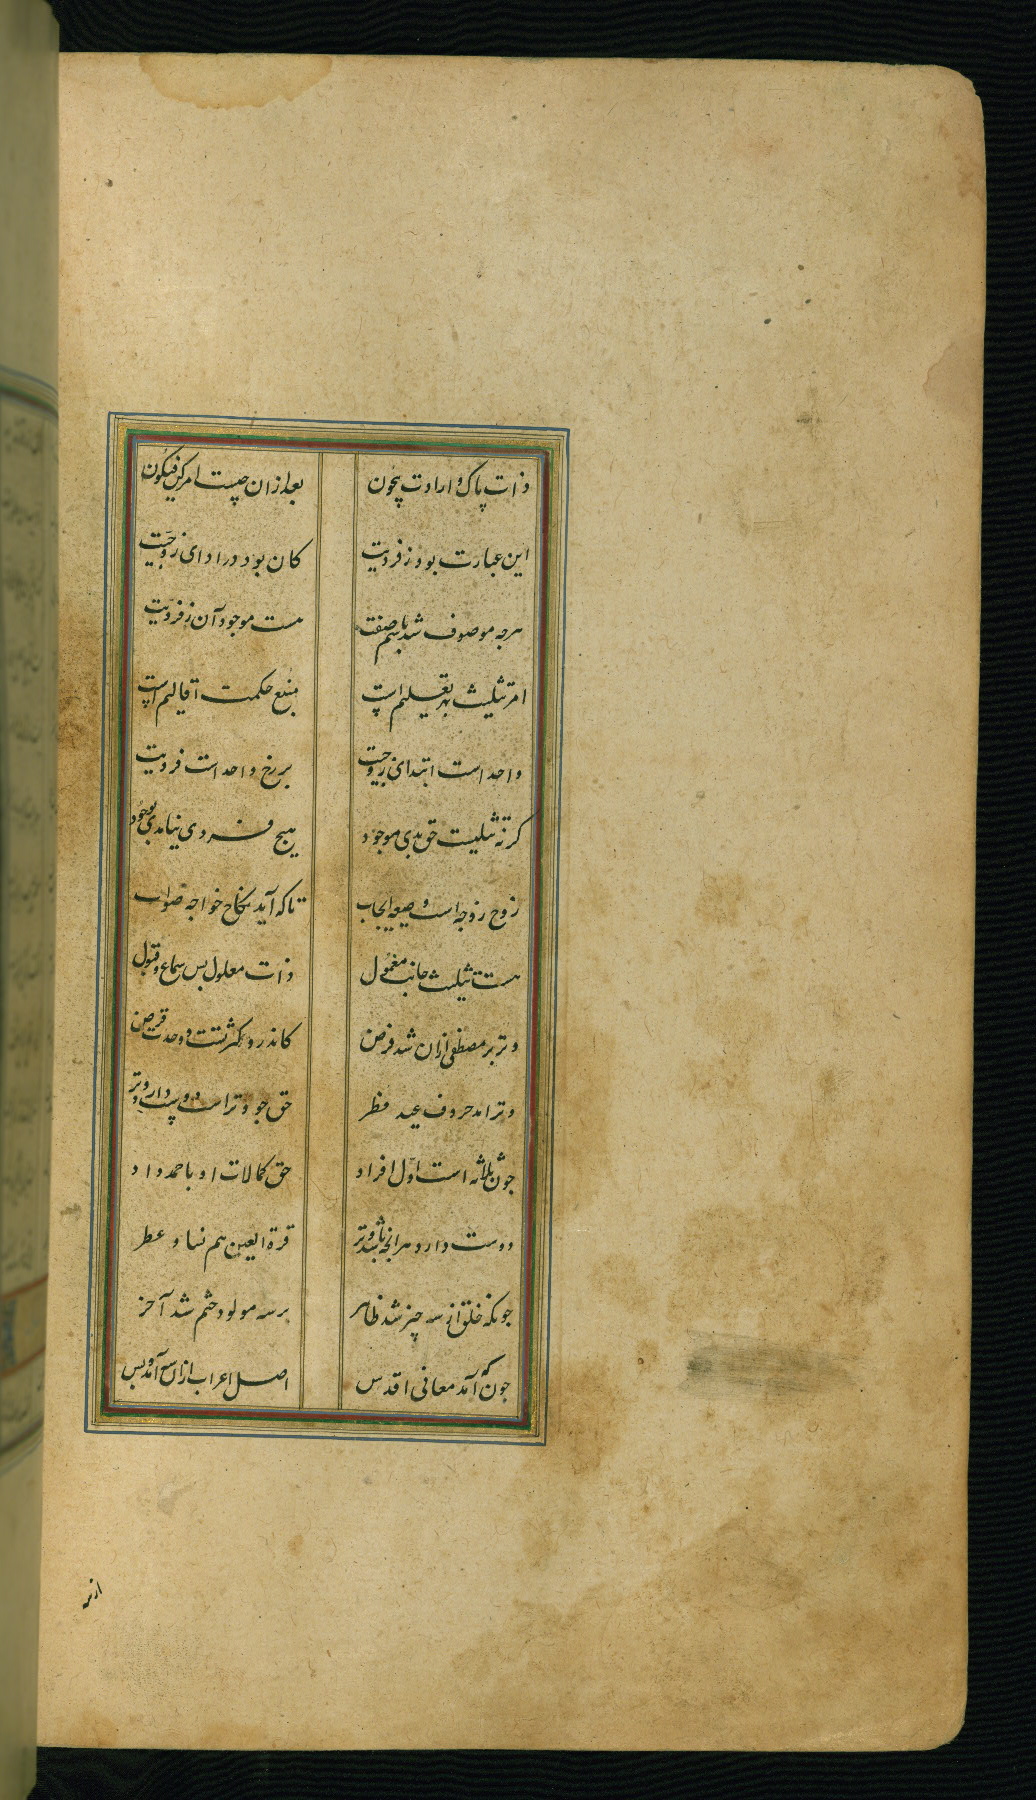 ذات پاک و ارادت بیچون بعد ازان چیست امر کن فیکون
این عبارت بود ز فردیت کان بود در ادای زوجیت
هرچه موصوف شد باسم صفت هست موجود آن ز فردیت
امر تثلیث بهر تعلیم است منبع حکمت اقالیم است
واحد است ابتدای زوجیت برزخ واحد است فردیت
کرنه تثلیث حق بدی موجود هیچ فردی نیامدی بوجود
زوج زوجه است و صیغه ایجاب تا که آید نکاح خواجه صواب
هست تثلیث جانب مفعول ذات معلول پس سماع و قبول
وتر بر مصطفی ازان شد فرض کاندرو کثرتست و وحدت قرض
وتر امد حروف عید فطر حق جو وترست و دوست دارد وتر
جون ثلاثه است اول افراد حق کمالات او باحمد داد
دوست دارد هر انچه باشد وتر قرة العین هم نسا و عطر
جونکه خلق از سه چیز شد ظاهر بر سه مولود ختم شد آخر
جون که آمد معانی اقدس اصل اعراب ازان سه آمد و بس